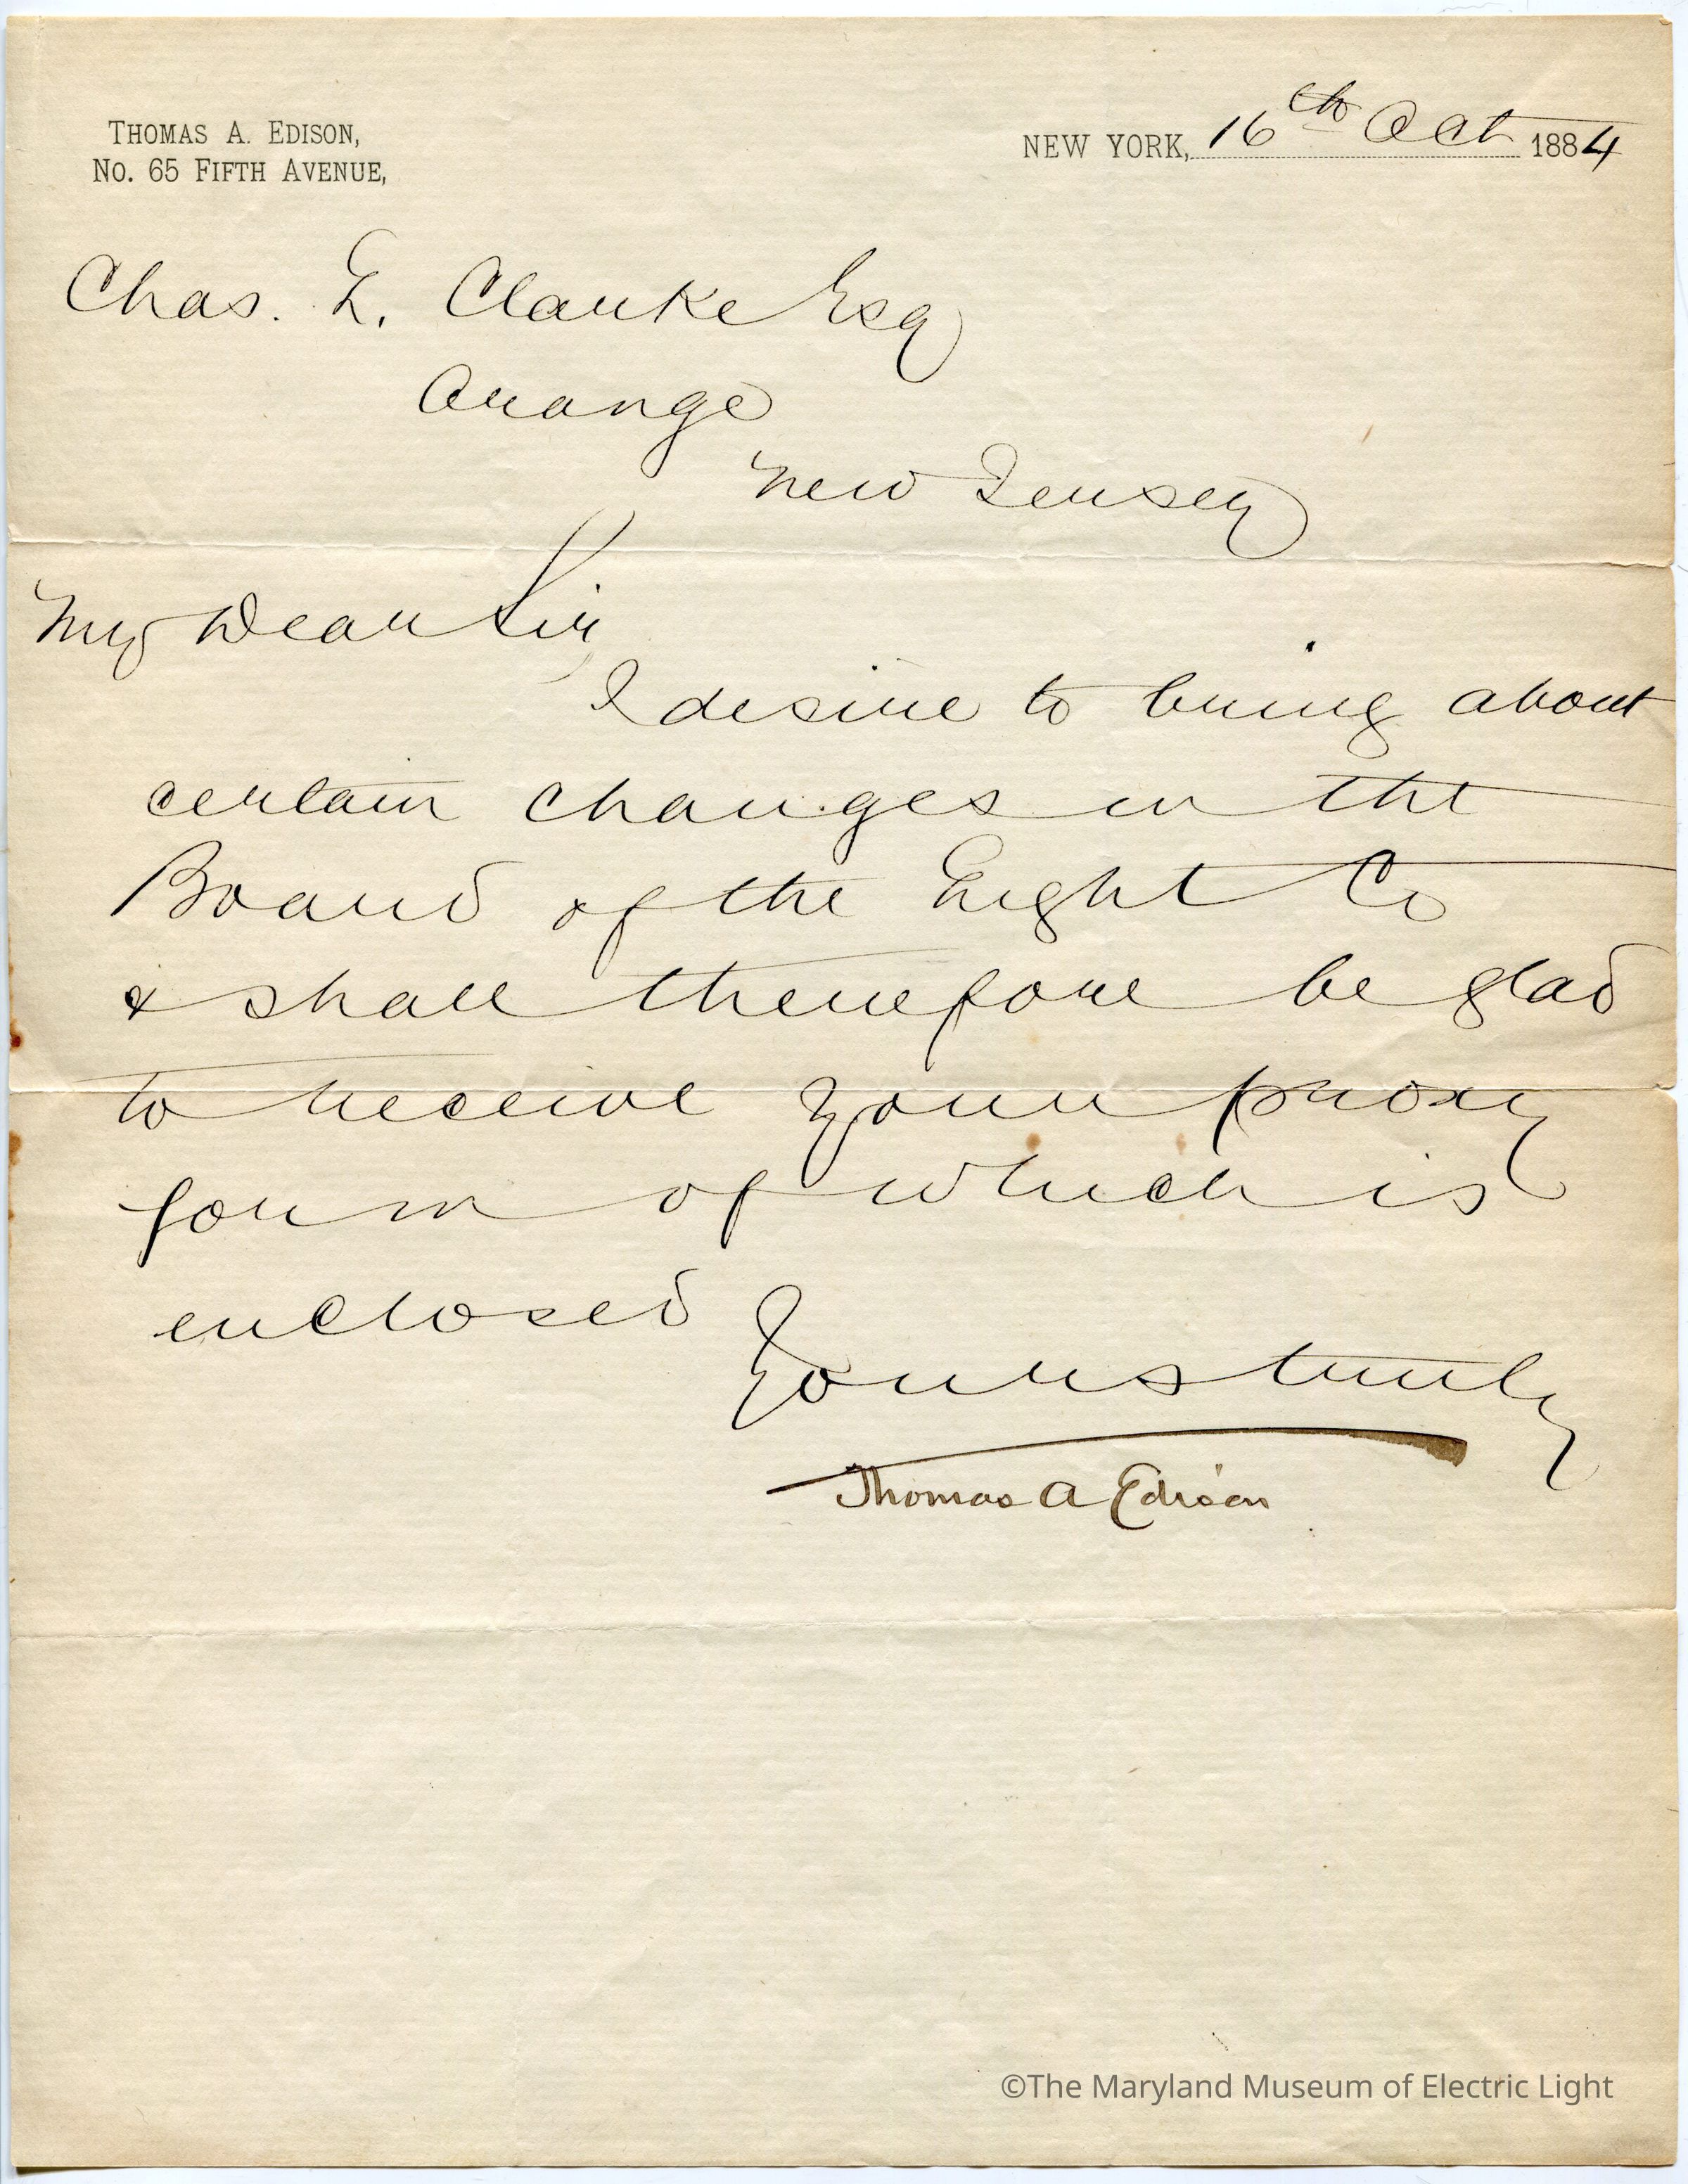 THOMAS A. EDISON,
No. 65 FIFTH AVENUE,
NEW YORK, 16th Oct 1884
Chas. L. Clarke Esq
Orange
New Jersey
My Dear Sir
I desire to bring about
certain changes in the
Board of the Light Co
& shall therefore be glad
to receive your proxy
form of which is
enclosed
Yours truly
Thomas A Edison
©The Maryland Museum of Electric Light